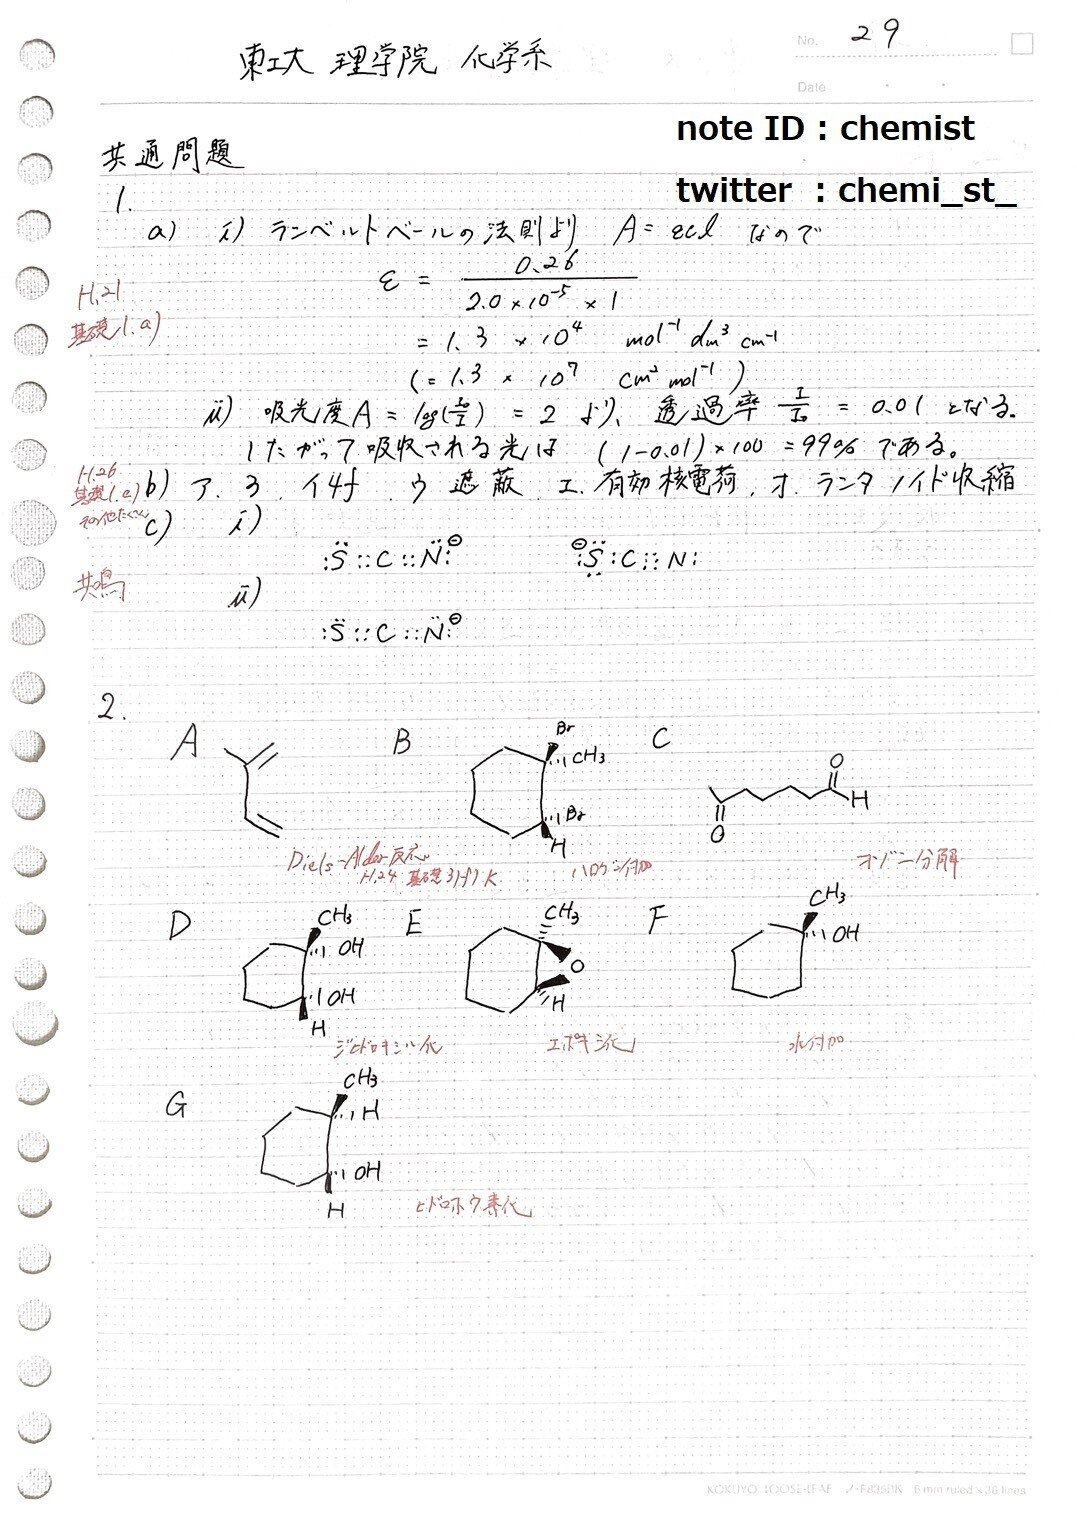 No. 29
東工大 理学院 化学系
Date
note ID : chemist
twitter : chemi_st_
共通問題
1.
a) i) ランベルトベールの法則より A = εcl なので
ε = 0.26 / 2.0 × 10⁻⁵ × 1
H.21
基礎1.a)
= 1.3 × 10⁴ mol⁻¹ dm³ cm⁻¹
(= 1.3 × 10⁷ cm² mol⁻¹)
ii) 吸光度A = log(I₀/I) = 2 より、透過率 I/I₀ = 0.01 となる。
したがって吸収される光は (1-0.01)×100 = 99% である。
H.26
基礎1.a)
その他たくさん
b) ア. 3 . イ4f . ウ 遮蔽 . エ. 有効核電荷 . オ. ランタノイド収縮
c) i)
:S̈::C::N̈:⊖ ⊖:S̈:C:::N:
共鳴
ii)
:S̈::C::N̈:⊖
2.
A B C
Br
CH₃
Br
H
O
H
O
Diels-Alder反応
H.24 基礎3
ハロゲン付加
オゾン分解
D E F
CH₃
OH
OH
H
CH₃
O
H
CH₃
OH
ジヒドロキシル化
エポキシ化
水付加
G
CH₃
H
OH
H
ヒドロホウ素化
KOKUYO LOOSE-LEAF ノ-F836BK 6 mm ruled × 36 lines